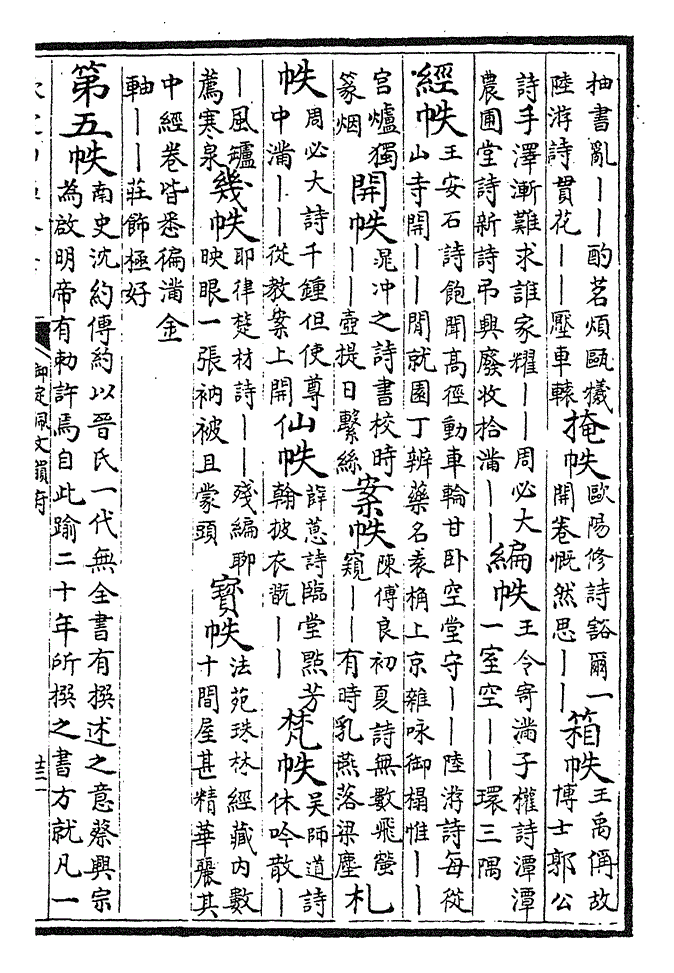 抽書亂――酌茗煩甌檥
陸游詩貫花――壓車轅
掩帙
歐陽修詩谿爾一
開卷慨然思――
箱帙
王禹偁故
博士郭公
詩手澤漸難求誰家耀――周必大
農圃堂詩新詩弔興廢收拾滿――
編帙
王令寄滿子權詩潭潭
一室空――環三隅
經帙
王安石詩飽聞高徑動車輪甘卧空堂守――陸游詩每從
山寺開――閒就園丁辨藥名袁桷上京雜咏御榻惟――
宫爐獨
篆烟
開帙
晁冲之詩書校時
――壺提日繫絲
案帙
陳傅良初夏詩無數飛螢
窺――有時乳燕落梁塵
札
帙
周必大詩千鍾但使尊
中滿――從教案上開
仙帙
薛蕙詩臨堂㸃芳
翰披衣翫――
梵帙
吴師道詩
休吟散―
―風鑪
薦寒泉
幾帙
耶律楚材詩――殘編聊
映眼一張衲被且蒙頭
寳帙
法苑珠林經藏内數
十間屋甚精華嚴其
中經卷皆悉徧滿金
軸――莊飾極好
第五帙
南史沈約傳約以晉氏一代無全書有撰述之意蔡興宗
為啟明帝有勅許焉自此踰二十年所撰之書方就凡一
御定佩文韻府